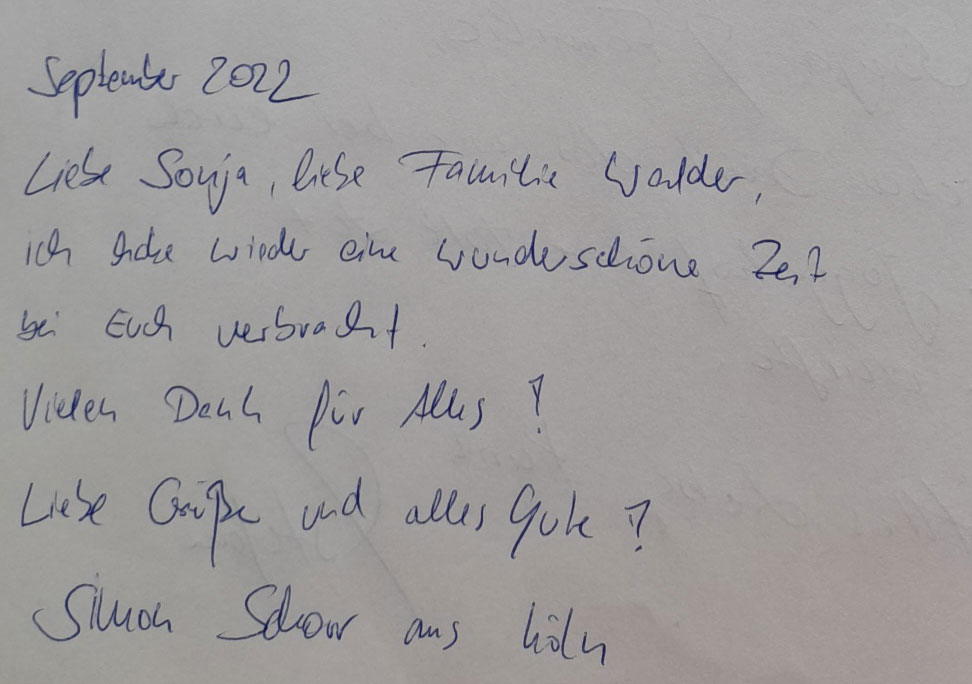 September 2022
Liebe Sonja, liebe Familie Walder,
ich habe wieder eine wunderschöne Zeit
bei Euch verbracht.
Vielen Dank für Alles!
Liebe Grüße und alles Gute!
Simon aus Köln